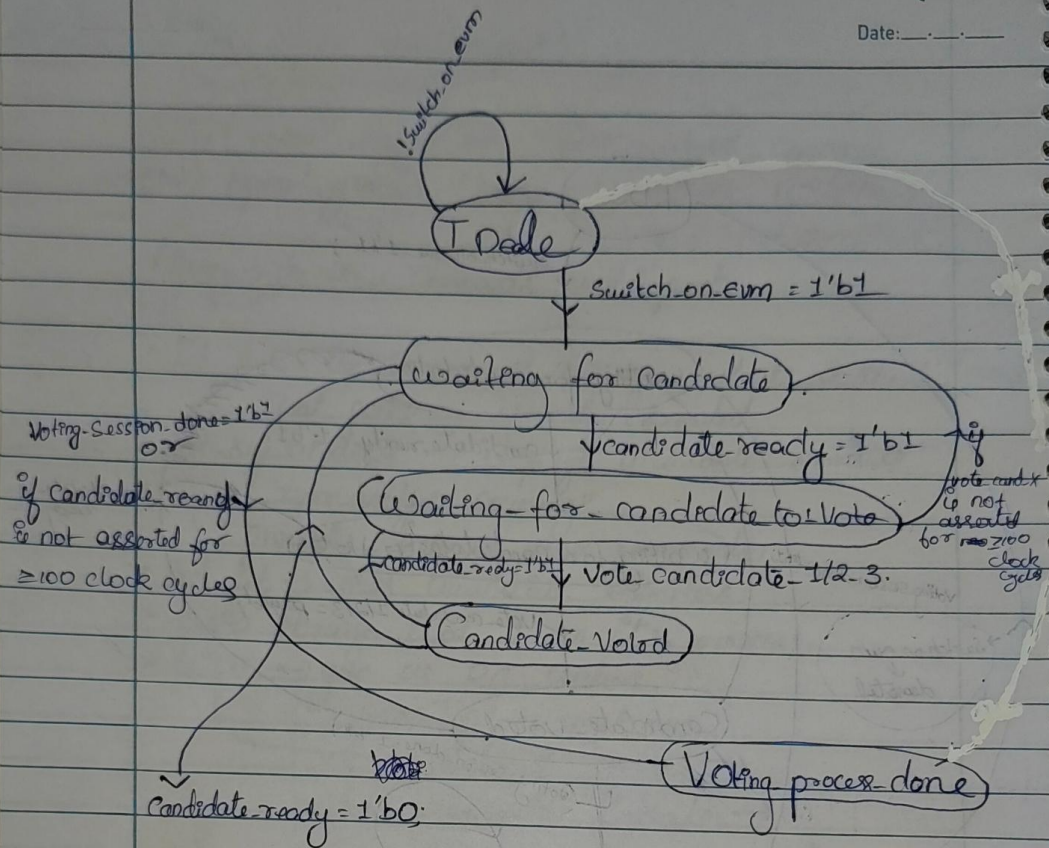 Date:__.__.__
!Switch_on_evm
IDdle
Switch_on_Evm = 1'b1
Waiting for Candidate
Voting-Session-done=1'b1
or
candidate_ready = 1'b1
if
if candidate_
is not asserted for
≥100 clock cycles
vote cand x
is not
asserted
for ≥100
clock
cycles
Waiting-for-candidate to-Vote
candidate_redy=1'b1
Vote candidate_1/2-3.
Candidate_Voted
Voting process_done
Candidate_ready = 1'b0;